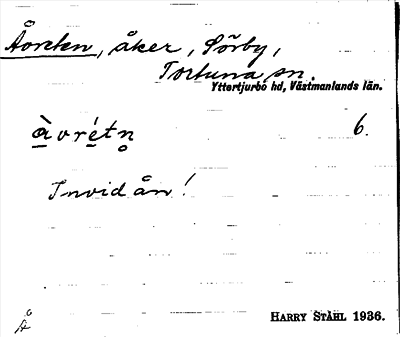 Åvreten, åker, Sörby,
Tortuna sn.
Yttertjurbo hd, Västmanlands län.
àvrétn̥ 6.
Invid ån!
HARRY STÅHL 1936.
Å